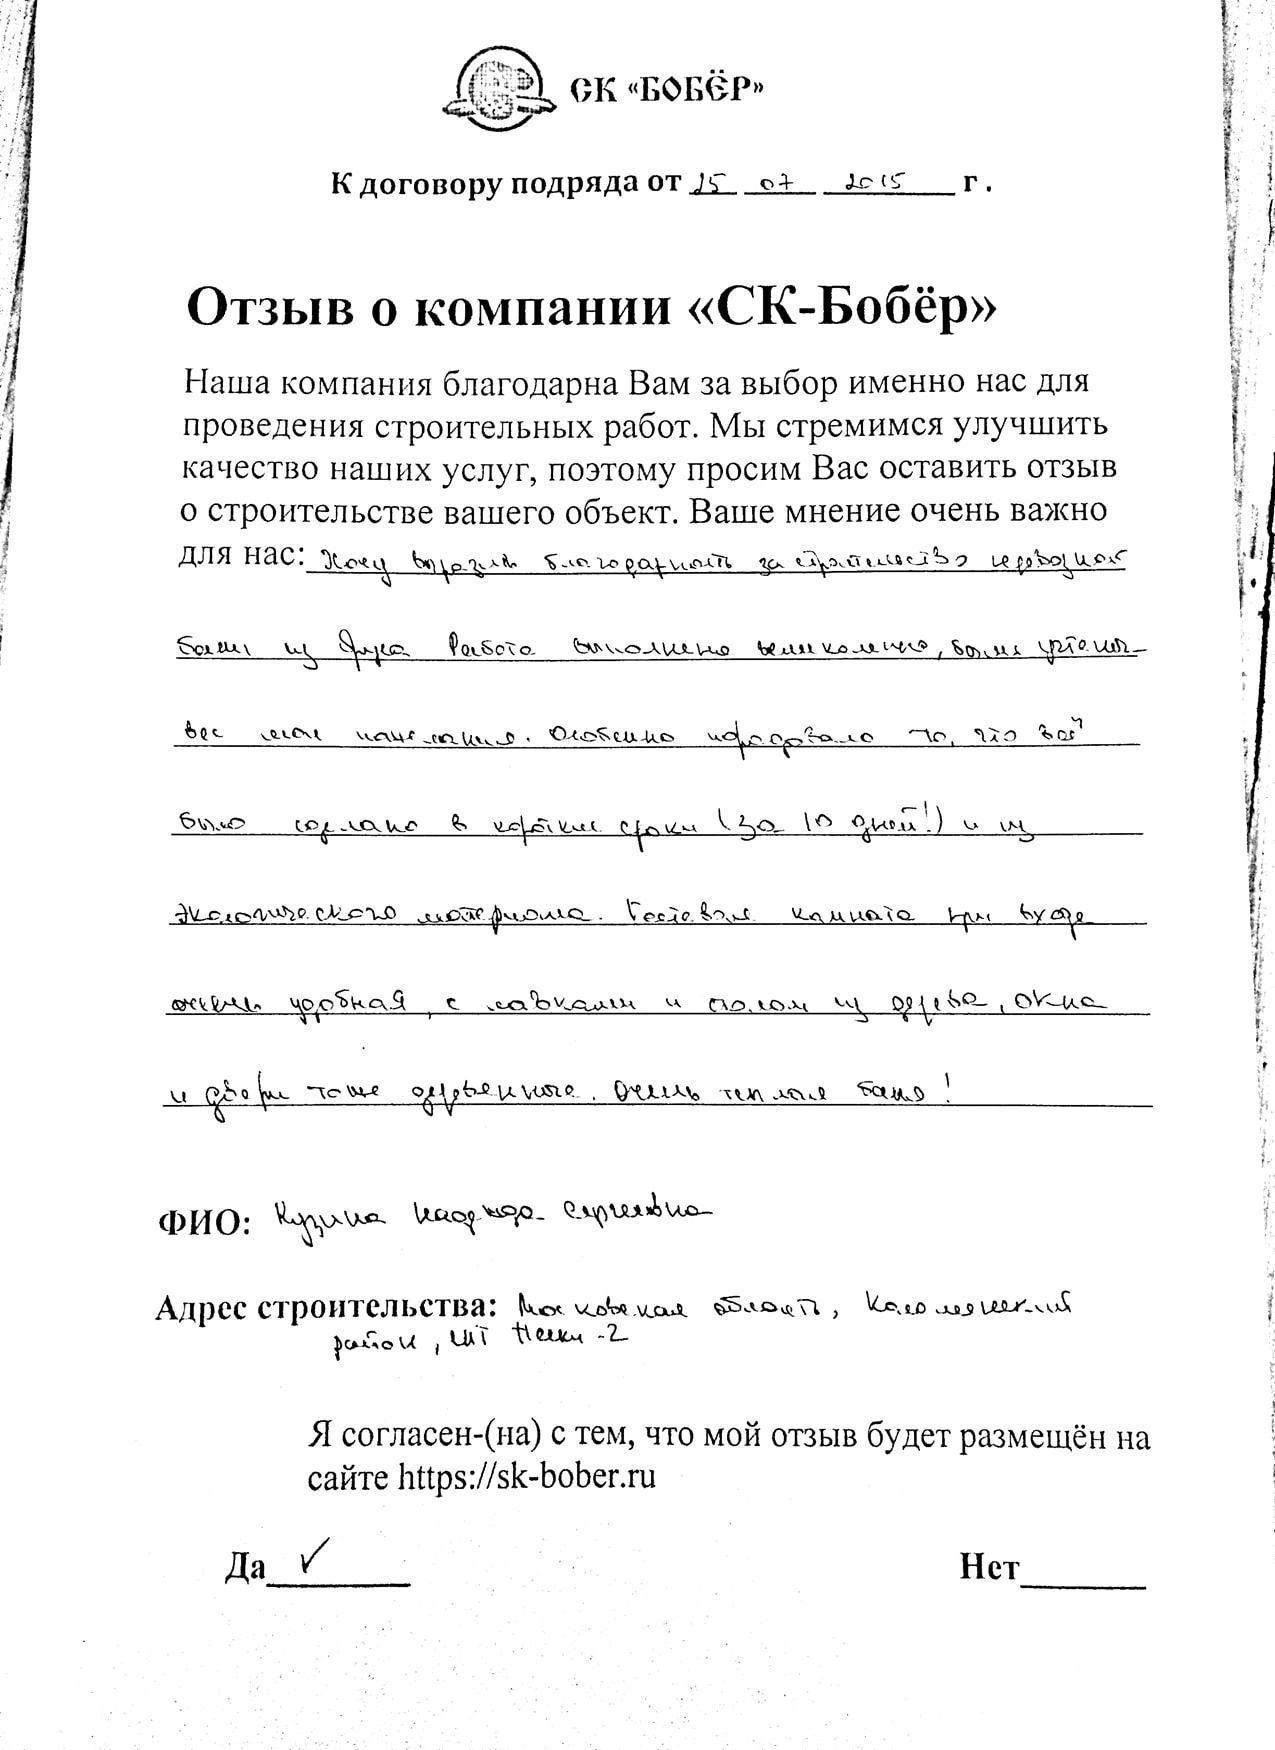 СК «БОБЁР»
К договору подряда от 25 07 2015 г .
Отзыв о компании «СК-Бобёр»
Наша компания благодарна Вам за выбор именно нас для
проведения строительных работ. Мы стремимся улучшить
качество наших услуг, поэтому просим Вас оставить отзыв
о строительстве вашего объект. Ваше мнение очень важно
для нас: Хочу выразить благодарность за строительство
бани из бруса Работа выполнена великолепно, были учтены
все мои пожелания. Особенно порадовало то, что всё
было сделано в короткие сроки (за 10 дней!) и из
экологического материала. Гостевая комната при входе
очень удобная, с лавками и столом из дерева, окна
и двери тоже деревянные. Очень теплая баня!
ФИО: Кузина Надежда Сергеевна
Адрес строительства: Московская область, Коломенский
район, Пески-2
Я согласен-(на) с тем, что мой отзыв будет размещён на
сайте https://sk-bober.ru
Да ✓ Нет